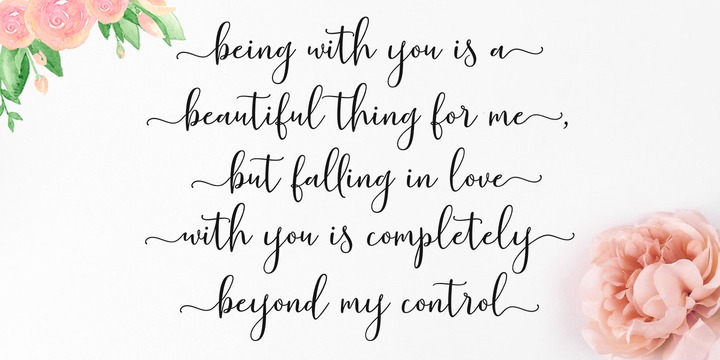 being with you is a
beautiful thing for me,
but falling in love
with you is completely
beyond my control